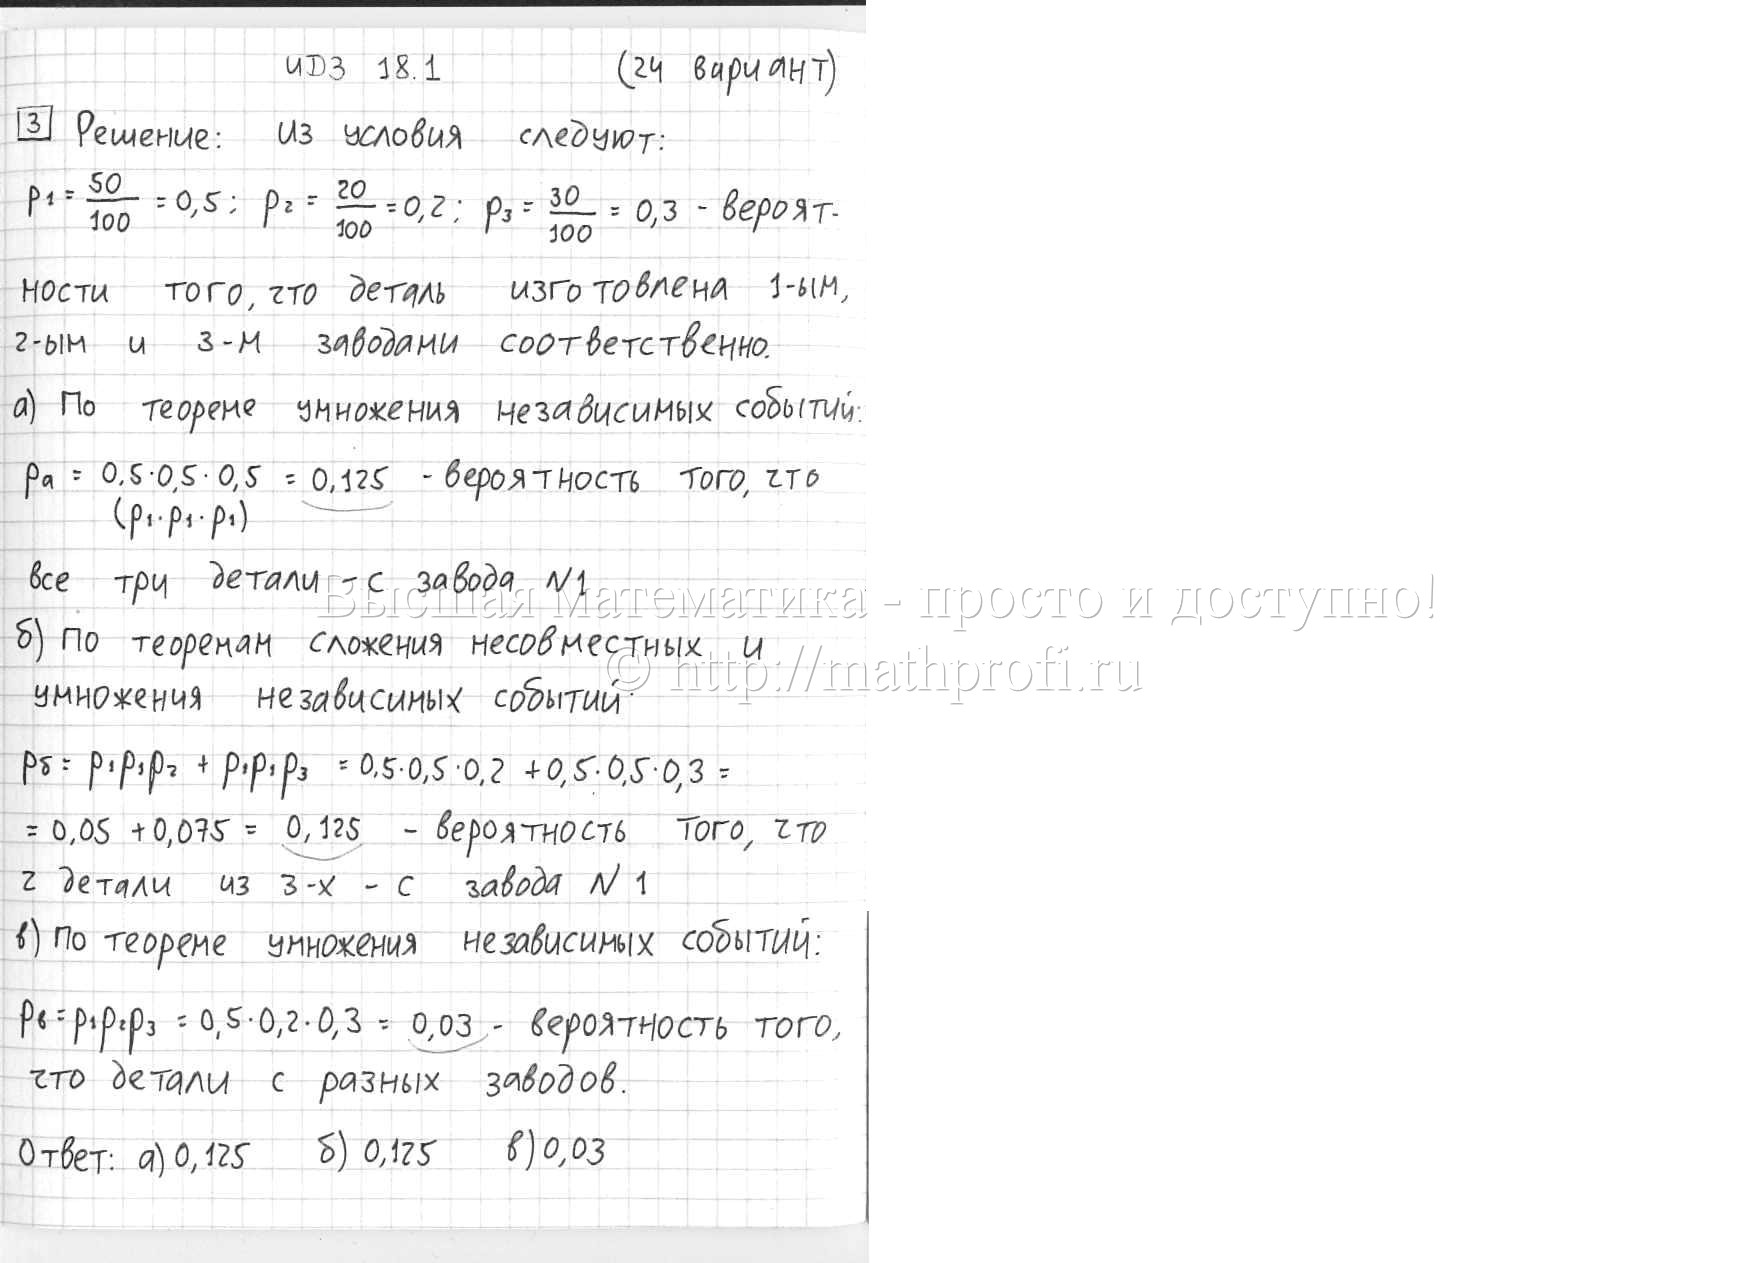 ИДЗ 18.1 (24 вариант)
3 Решение: Из условия следуют:
p1 = 50/100 = 0,5; p2 = 20/100 = 0,2; p3 = 30/100 = 0,3 - вероят-
ности того, что деталь изготовлена 1-ым,
2-ым и 3-м заводами соответственно.
а) По теореме умножения независимых событий:
pа = 0,5·0,5·0,5 = 0,125 - вероятность того, что
(p1·p1·p1)
все три детали - с завода N1
Высшая математика - просто и доступно!
б) По теоремам сложения несовместных и
© http://mathprofi.ru
умножения независимых событий:
pб = p1p1p2 + p1p1p3 = 0,5·0,5·0,2 + 0,5·0,5·0,3 =
= 0,05 + 0,075 = 0,125 - вероятность того, что
2 детали из 3-х - с завода N 1
в) По теореме умножения независимых событий:
pв = p1p2p3 = 0,5·0,2·0,3 = 0,03 - вероятность того,
что детали с разных заводов.
Ответ: а) 0,125 б) 0,125 в) 0,03